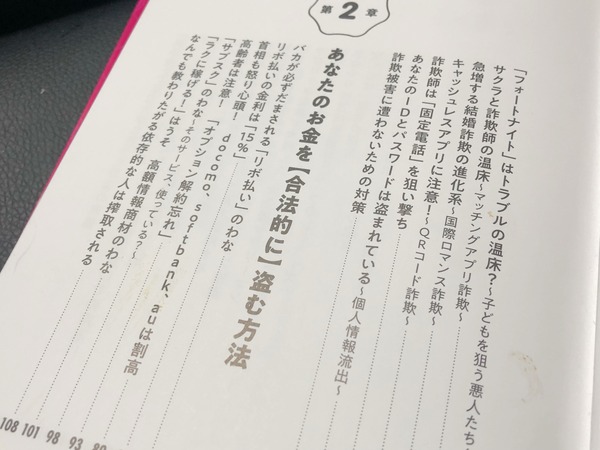 「フォートナイト」はトラブルの温床?~子どもを狙う悪人たち
サクラと詐欺師の温床~マッチングアプリ詐欺~
急増する結婚詐欺の進化系~国際ロマンス詐欺~
キャッシュレスアプリに注意!~QRコード詐欺~
詐欺師は「固定電話」を狙い撃ち
あなたのIDとパスワードは盗まれている~個人情報流出~
詐欺被害に遭わないための対策
第2章
あなたのお金を【合法的に】盗む方法
バカが必ずだまされる「リボ払い」のわな
リボ払いの金利は「15%」
首相も怒り心頭! docomo、softbank、auは割高
高齢者は注意! 「オプション解約忘れ」
「サブスク」のわな~そのサービス、使っている?~
「ラクに稼げる!」はうそ 高額情報商材のわな
なんでも教わりたがる依存的な人は搾取される
93
98
101
108